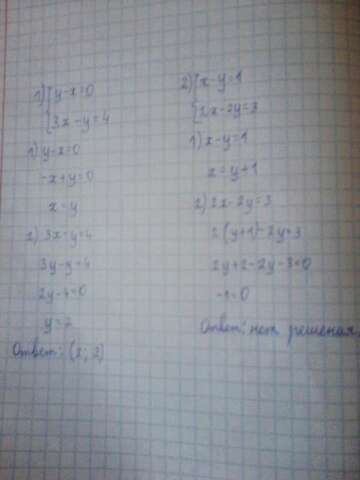 1) { y-x=0
{ 3x-y=4
1) y-x=0
-x+y=0
x=y
2) 3x-y=4
3y-y=4
2y-4=0
y=2
Ответ: (2; 2)
2) { x-y=1
{ 2x-2y=3
1) x-y=1
x=y+1
2) 2x-2y=3
2(y+1)-2y=3
2y+2-2y-3=0
-1=0
Ответ: нет решения.